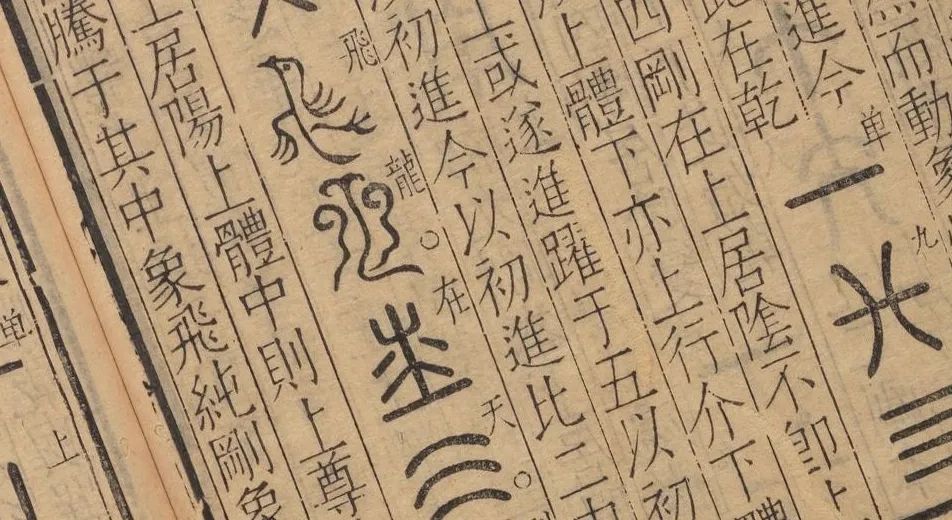 而動象
進今
此在乾
单
一
九
三
四剛在上居陰不即上
上體下亦上行介下體
上或遂進躍于五以初
初進今以初進比二中
飛
龍。
在
天。
上居陽上體中則上尊
騰于其中象飛純剛象
单
上